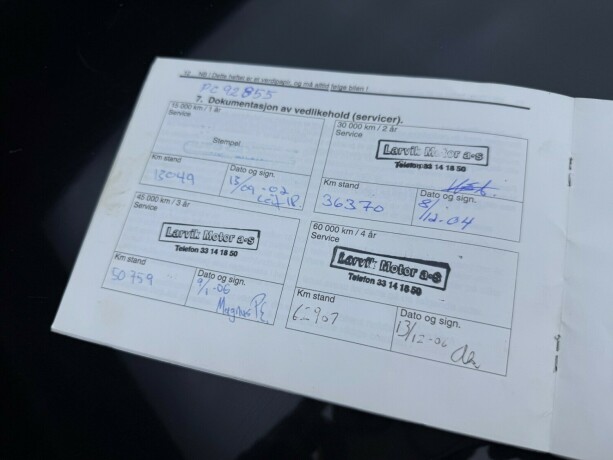 NB ! Dette heftet er et verdipapir, og må alltid følge bilen !
PC 92855
7. Dokumentasjon av vedlikehold (servicer).
15 000 km / 1 år
Service
Stempel
Km stand
13049
Dato og sign.
13/09-02
30 000 km / 2 år
Service
Larvik Motor a-s
Telefon 33 14 18 50
Km stand
36370
Dato og sign.
8/12-04
45 000 km / 3 år
Service
Larvik Motor a-s
Telefon 33 14 18 50
Km stand
50759
Dato og sign.
9/1-06
60 000 km / 4 år
Service
Larvik Motor a-s
Telefon 33 14 18 50
Km stand
62907
Dato og sign.
13/12-06